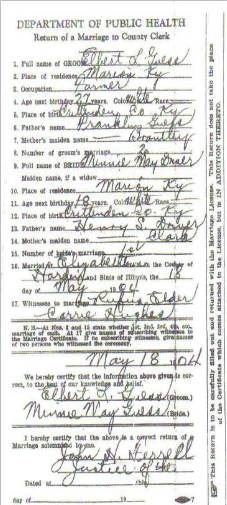 DEPARTMENT OF PUBLIC HEALTH
Return of a Marriage to County Clerk
1. Full name of GROOM Elbert L Guess
2. Place of residence Marion Ky
3. Occupation Farmer
4. Age next birthday 27 years. Color White Race
5. Place of birth Crittenden Co Ky
6. Father's name Franklin Guess
7. Mother's maiden name
8. Number of groom's marriage 2d
9. Full name of BRIDE Minnie May
Maiden name, if a widow
10. Place of residence Marion Ky
11. Age next birthday 18 years. Color White Race
12. Place of birth Crittenden Co. Ky
13. Father's name Henry S.
14. Mother's maiden name Clark
15. Number of bride's marriage 1st
16. Married at Elizabethtown in the County of
Hardin and State of Illinois, the 18
day of May 1904
17. Witnesses to marriage Rufus Elder
Carrie Hughes
N. B.—At Nos. 8 and 15 state whether 1st, 2nd, 3rd, 4th, etc.,
marriage of each. At 17 give names of subscribing witnesses to
the Marriage Certificate. If no subscribing witnesses, give names
of two persons who witnessed the ceremony.
May 18 1904
We hereby certify that the information above given is cor-
rect, to the best of our knowledge and belief.
Elbert L. Guess (Groom)
Minnie May Guess (Bride.)
I hereby certify that the above is a correct return of
Marriage solemnized by me.
John H. Ferrell
Justice of the
Dated at this
day of 19
This Return is to be carefully filled out and returned with the Marriage License. This Return does not take the place
of the Certificate which comes attached to the License, but is IN ADDITION THERETO.